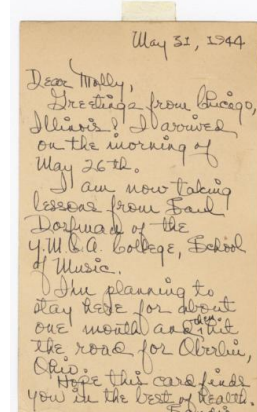 May 31, 1944
Dear Molly,
Greetings from Chicago,
Illinois! I arrived
on the morning of
May 26th.
I am now taking
lessons from Saul
Dorfman of the
Y.M.C.A. College, School
of Music.
I'm planning to
stay here for about
one month and then hit
the road for Oberlin,
Ohio.
Hope this card finds
you in the best of health.